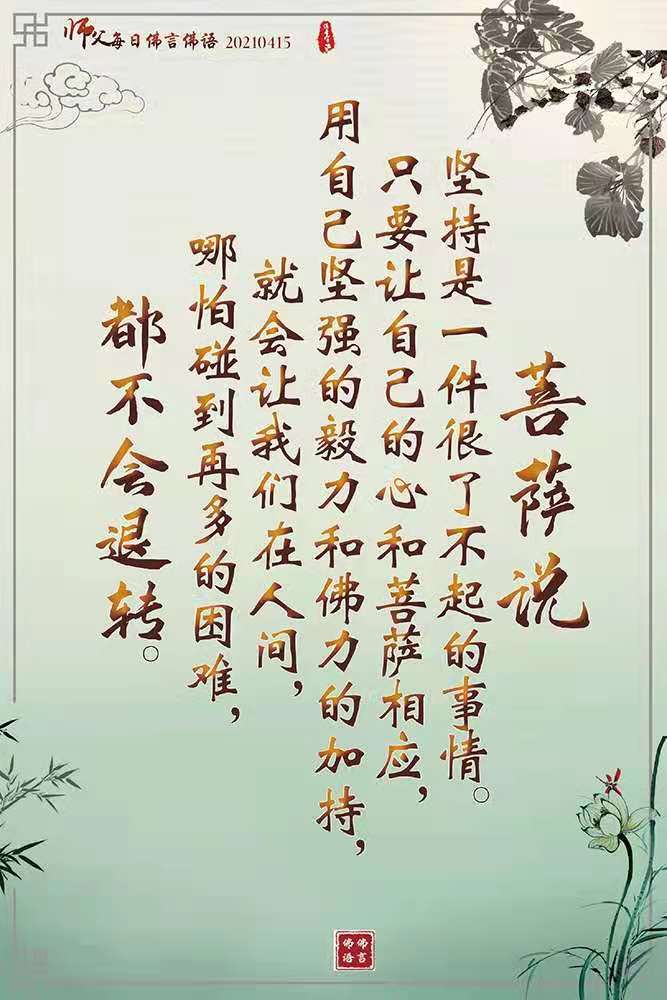 师父每日佛言佛语 20210415
菩萨说
坚持是一件很了不起的事情。
只要让自己的心和菩萨相应，
用自己坚强的毅力和佛力的加持，
就会让我们在人间，
哪怕碰到再多的困难，
都不会退转。
佛言
佛语